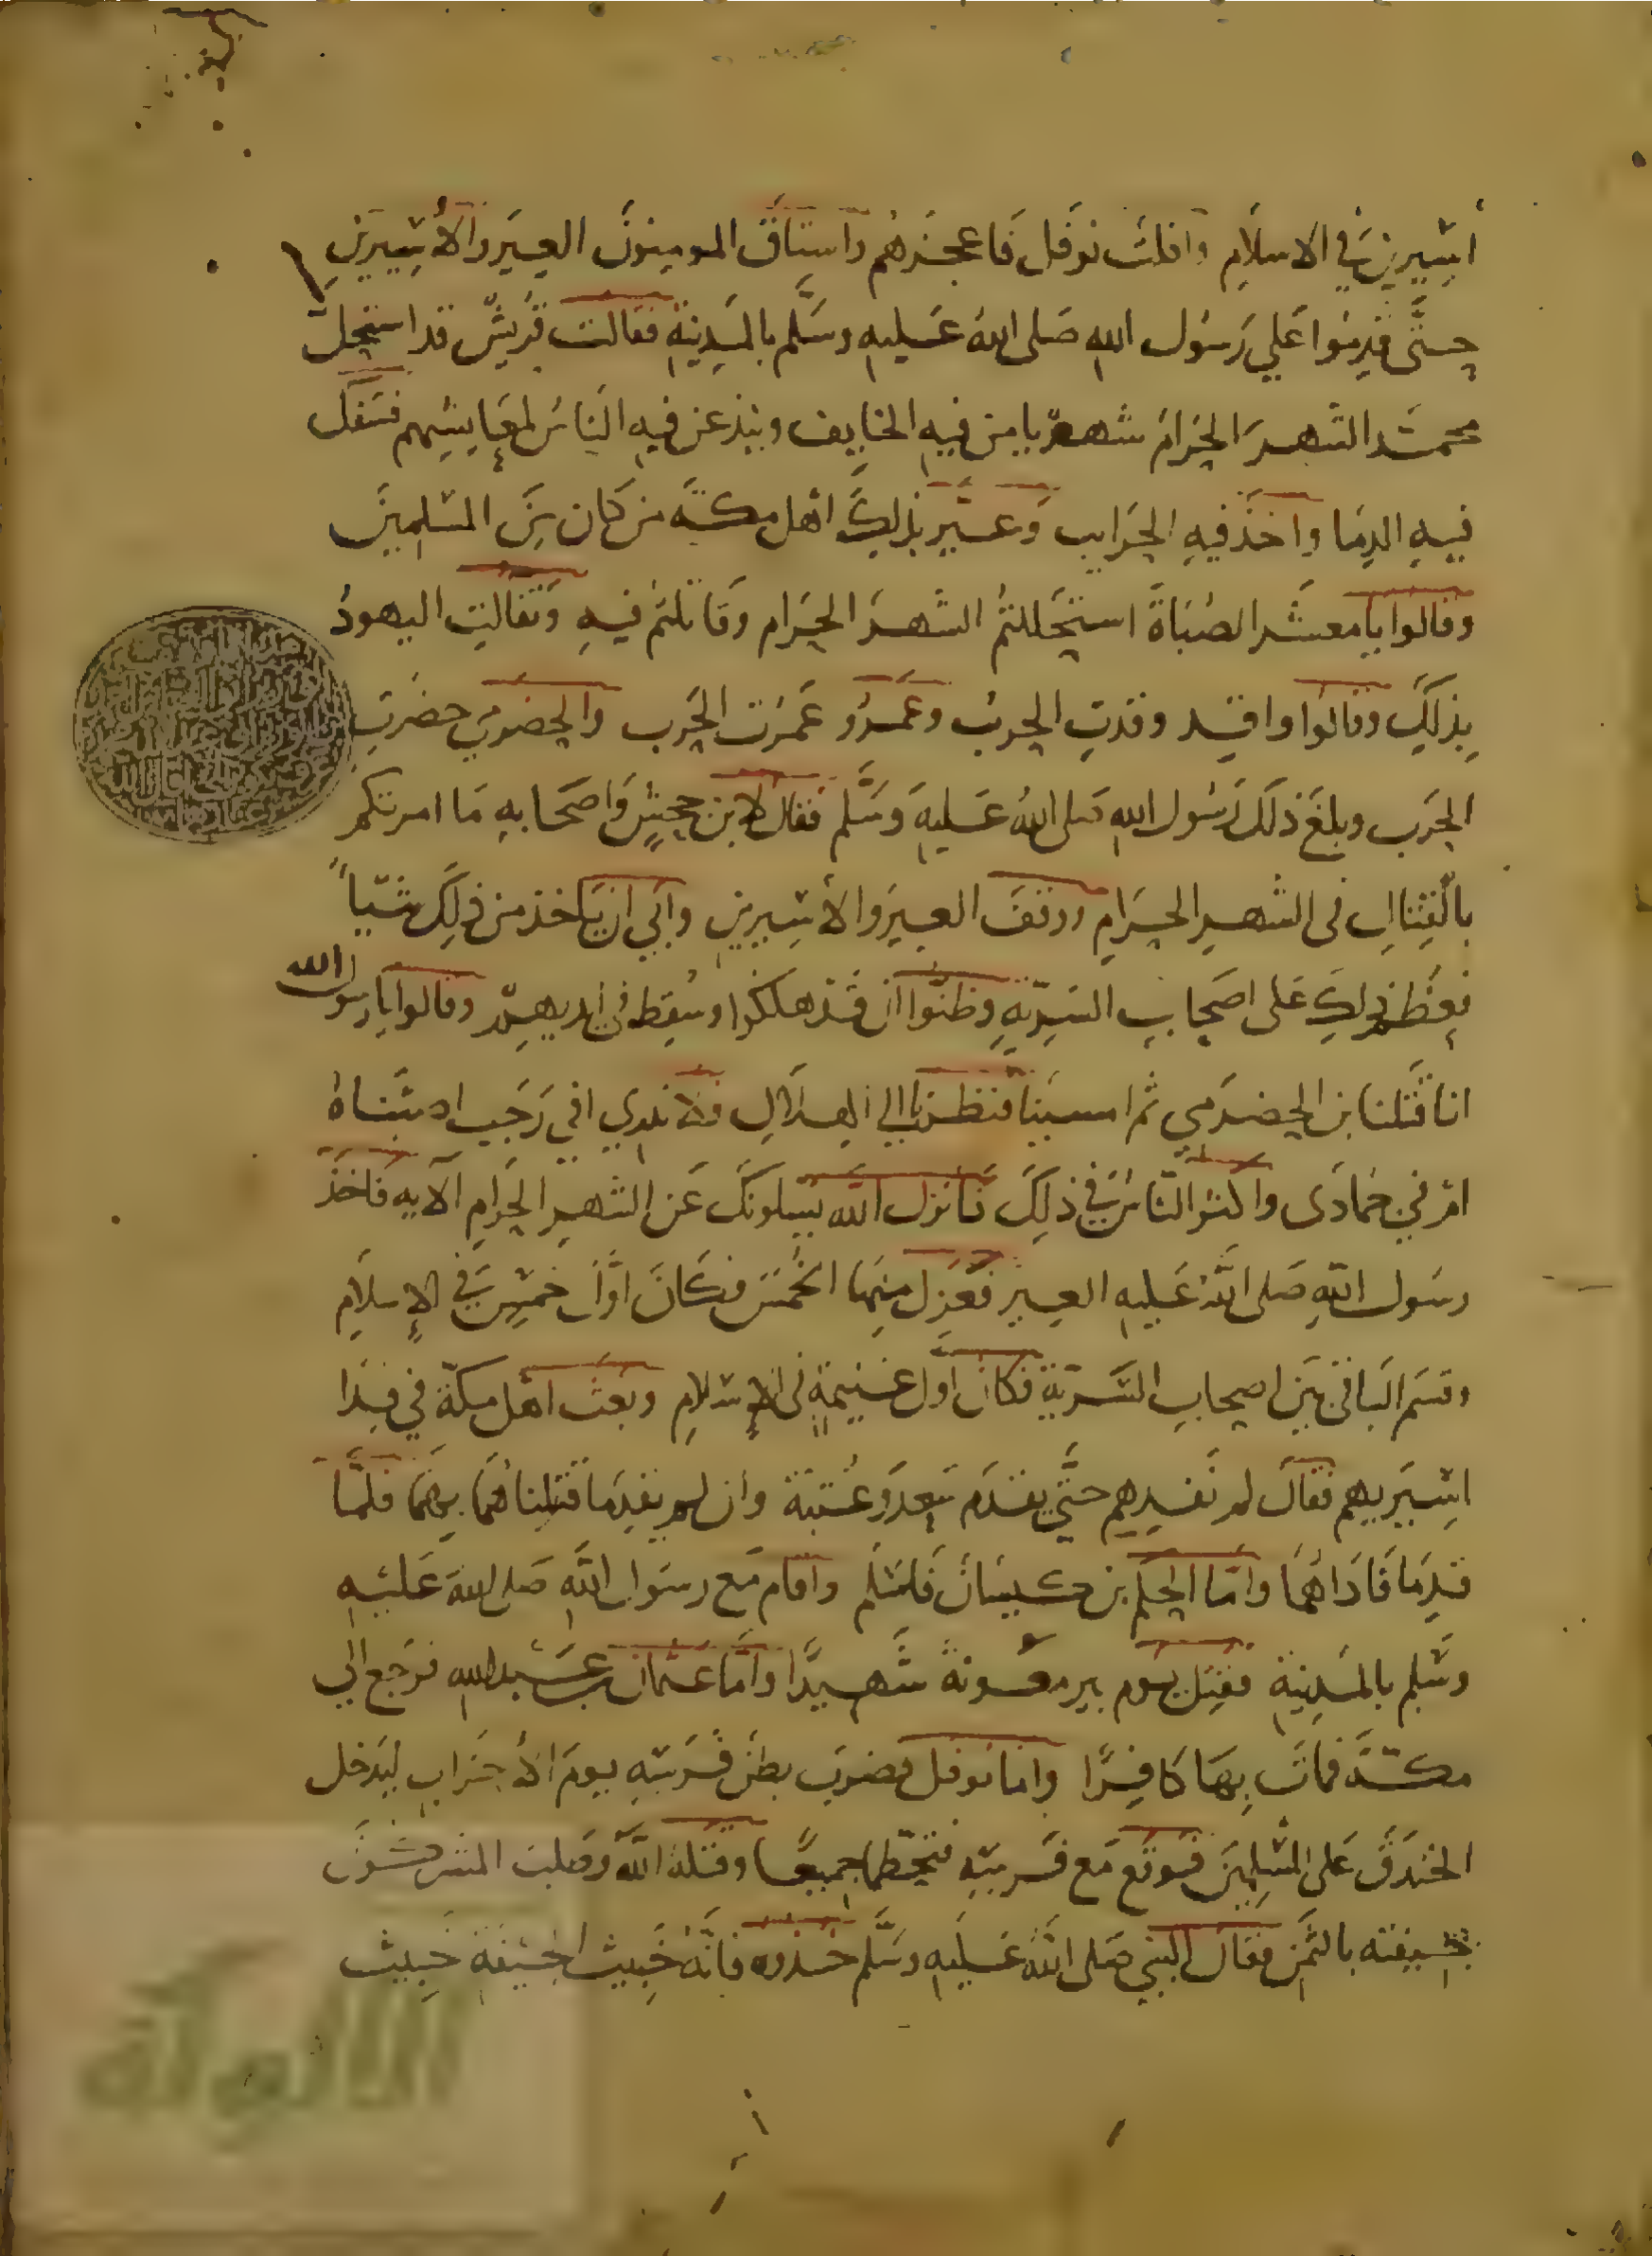 أسيرين في الاسلام وافلت نوفل فاعجزهم واستاق المومنون العير والأسيرين
حتى قدموا على رسول الله صلى الله عليه وسلم بالمدينة فقالت قريش قد استحل
محمد الشهر الحرام شهر يامن فيه الخايف وينذعر فيه الناس لمعايشهم فسفك
فيه الدما واخذ فيه الحرايب وعير بذلك اهل مكة من كان من المسلمين
وقالوا يا معشر الصباة استحللتم الشهر الحرام وقاتلتم فيه وتفالت اليهود
بذلك وقالوا واقد وقدت الحرب وعمرو عمرت الحرب والحضرمي حضرت
الحرب وبلغ ذلك رسول الله صلى الله عليه وسلم فقال لابن جحش واصحابه ما امرتكم
بالقتال في الشهر الحرام ووقف العير والأسيرين وأبي ان ياخذ من ذلك شيأ
فعظم ذلك على اصحاب السرية وظنوا ان قد هلكوا وسقط في ايديهم وقالوا يا رسول الله
انا قتلنا بن الحضرمي ثم امسينا فنظرنا الي الهلال فلا ندري افي رجب اصبناه
ام في جمادى واكثر الناس في ذلك فأنزل الله يسلونك عن الشهر الحرام الآيه فاخذ
رسول الله صلى الله عليه العير فعزل منها الخمس فكان اول خمس في الإسلام
وقسم الباقي بين اصحاب السرية فكان اول غنيمة في الإسلام وبعث اهل مكة في فدا
اسيريهم فقال لم نفديهم حتى يقدم سعد وعتبة وان لم يقدما قتلناهما بهما فلما
قدما فاداهما واما الحكم بن كيسان فاسلم واقام مع رسول الله صلى الله عليه
وسلم بالمدينة فقتل يوم بير معونة شهيدا واما عثمان بن عبد الله فرجع الي
مكة فمات بها كافرا واما نوفل فضرب بطن فرسه يوم الأحزاب ليدخل
الخندق على المسلمين فوقع مع فرسه فتحطما جميعا وقتله الله وطلب المشركون
جيفته بالثمن فقال النبي صلى الله عليه وسلم خذوه فانه خبيث الجيفة خبيث